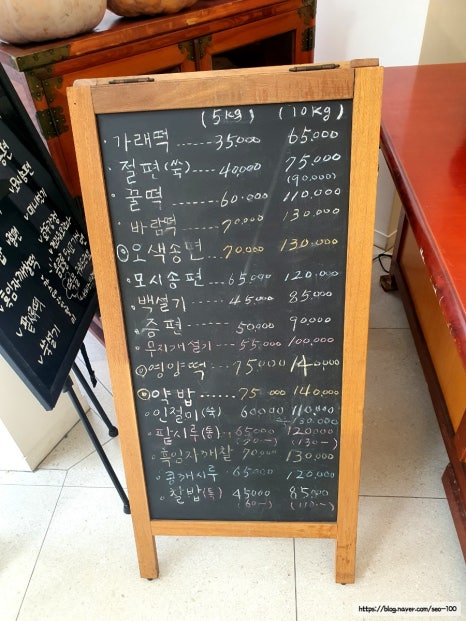 (5kg) (10kg)
· 가래떡 ...... 35000 65.000
· 절편(쑥) .... 40,000 75.000
(90,000)
· 꿀떡 ...... 60.000 110,000
· 바람떡 ...... 70,000 130,000
오색송편 ...... 70,000 130,000
· 모시송편 ...... 65,000 120,000
· 백설기 ...... 45000 85,000
· 증편 ...... 50,000 90,000
· 무지개설기 ...... 55,000 100,000
영양떡 ...... 75000 140000
약밥 ...... 75000 140,000
· 인절미(쑥) 60000 110,000
130,000
· 팥시루(통) ... 65000 120000
(70—) (130—)
· 흑임자깨찰 70000 130,000
· 콩깨시루 65000 120,000
· 찰밥(특) 45000 85,000
(60—) (110—)
https://blog.naver.com/seo-100